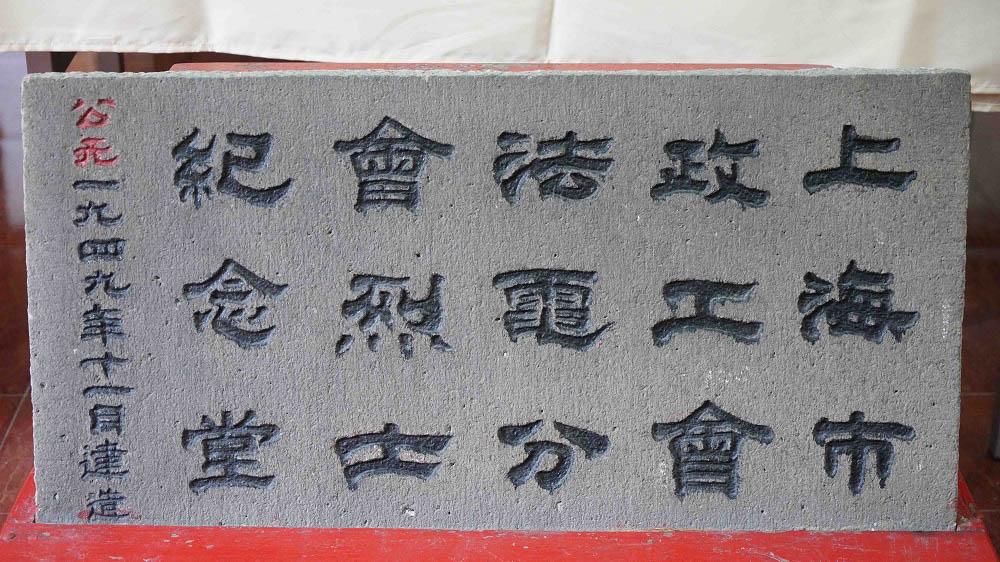 上海市
政工會
法電分
會烈士
紀念堂
公元一九四九年十一月建造